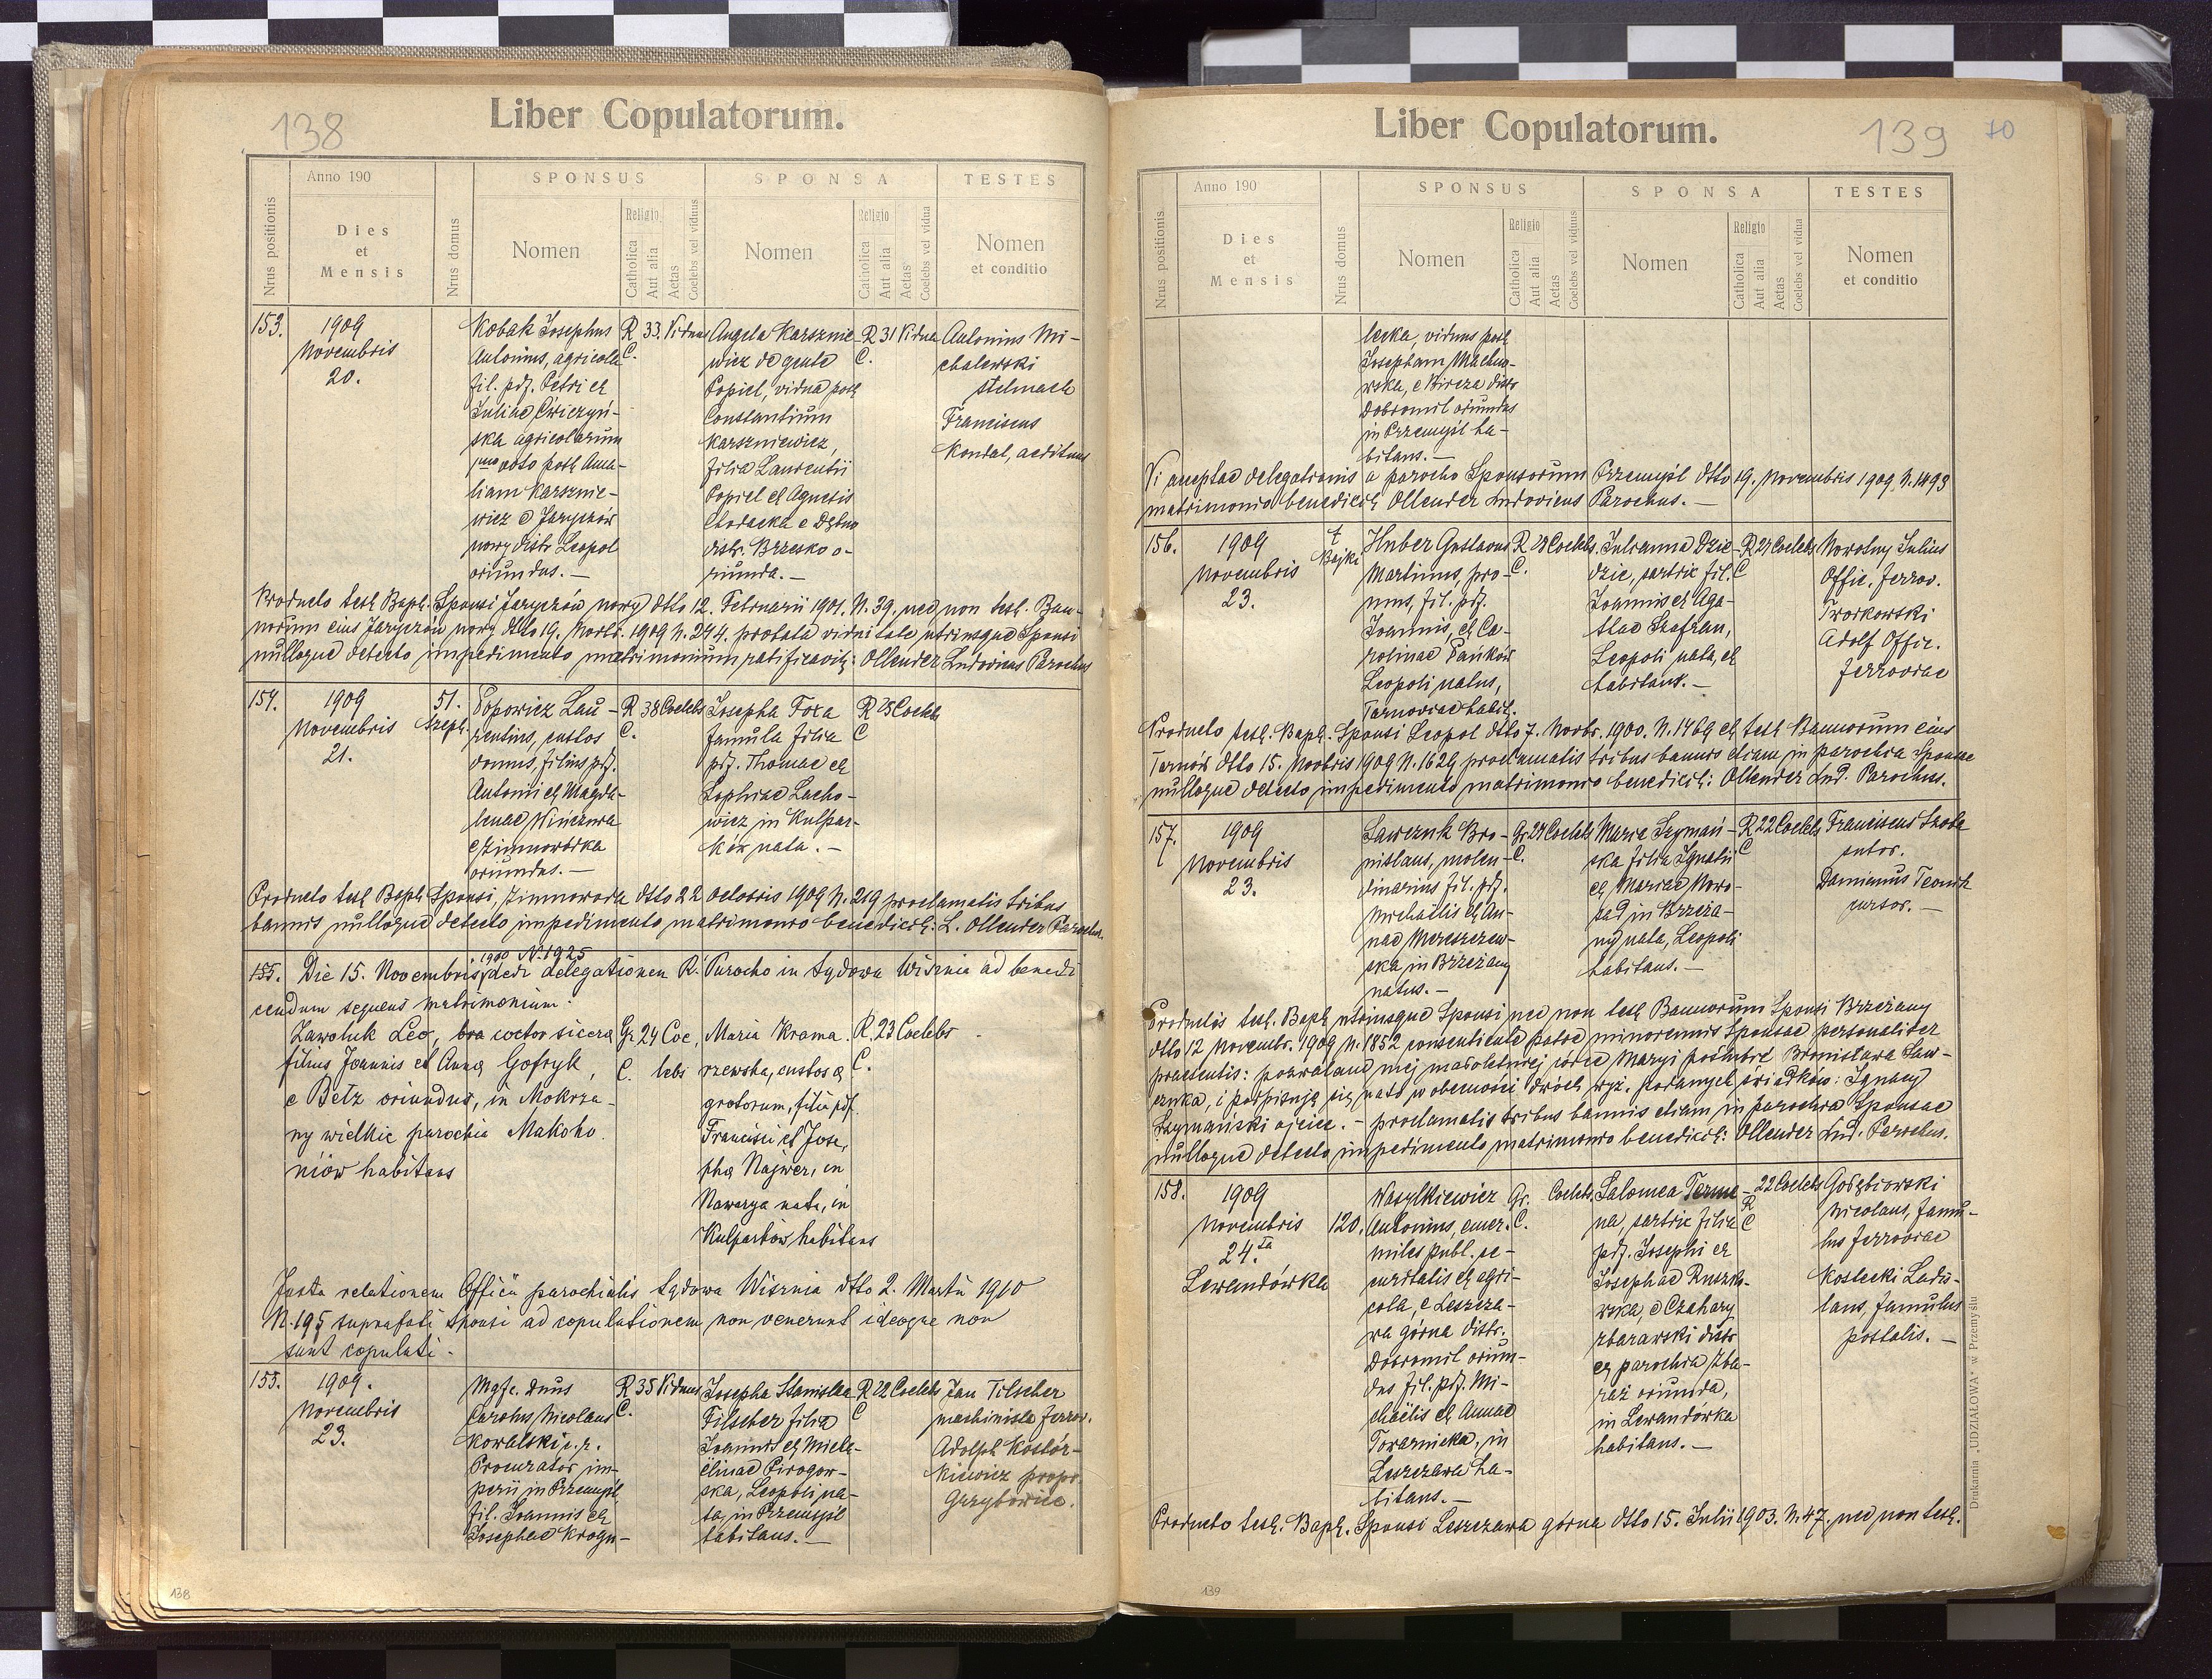 138
Liber Copulatorum.
Nrus positionis
Anno 190
Dies
et
Mensis
Nrus domus
SPONSUS
Nomen
Religio
Catholica
Aut alia
Aetas
Coelebs vel viduus
SPONSA
Nomen
Religio
Catholica
Aut alia
Aetas
Coelebs vel vidua
TESTES
Nomen
et conditio
153.
1909
Novembris
20.
Kobak Josephus
Antonius, agricola
fil. pdf. Petri et
Juliae Ćwiczyń-
ska agricolarum
1mo voto post Ama-
liam Karsznie-
wicz e Jaryczów
nowy distr. Leopol
oriundus. —
R
C.
33.
Viduus
Angela Karsznie-
wicz de gente
Popiel, vidua post
Constantium
Karszniewicz,
filia Laurentii
Popiel et Agnetis
Chodacka e Dębno
distr. Brzesko o-
riunda. —
R
C.
31
Vidua
Antonius Mi-
chalewski
stelmach
Franciscus
Kondal, aedituus
Producto test. Bapt. Sponsi Jaryczów nowy dtto 12. Februarii 1901. N. 39. nec non test. Ban-
norum eius Jaryczów nowy dtto 19. Novbr. 1909 N. 244. probata viduitate utriusque Sponsi
nulloque detecto impedimento matrimonium ratificavit: Ollender Ludovicus Parochus
154.
1909
Novembris
21.
51.
Szept.
Popowicz Lau-
rentius, custos
domus, filius pdf.
Antonii et Magda-
lenae Winczura
e Zimnowódka
oriundus. —
R
C.
38
Coelebs
Josepha Foxa
famula filia
pdf. Thomae et
Sophiae Lacho-
wicz in Kulpar-
ków nata. —
R
C
28
Coelebs
Producto test. Bapt. Sponsi, Zimnowoda dtto 22 octobris 1909 N. 219 proclamatis tribus
bannis nulloque detecto impedimento matrimonio benedixit: L. Ollender Parochus.
1900 N. 1925
155. Die 15. Novembris, dedi delegationem R. Parocho in Sądowa Wisznia ad benedi
cendum sequens matrimonium:
Zawoluk Leo, bra coctor sicera
filius Joannis et Anna Gofryk,
e Bełz oriundus, in Mokrza-
ny wielkie parochia Makoho.
niów habitans
Gr.
C.
24
Coe,
lebs
Maria Krama.
rzewska, custos ae
grotorum, filia pdf.
Francisci et Jose,
pha Najwer, in
Nawarya nata, in
Kulparków habitans
R.
C.
23
Coelebs
Juxta relationem Officii parochialis Sądowa Wisznia dtto 2. Martii 1910
N. 195 suprafati sponsi ad copulationem non venerunt ideoque non
sunt copulati.
155.
1909.
Novembris
23.
Mgfc. Dnus
Carolus Nicolaus
Kowalski c. r.
Procurator im-
perii in Przemyśl,
fil. Joannis et
Josephae Krogu-
R
C.
35
Viduus
Josepha Stanislaa
Tilscher filia
Joannis et Miche-
linae Pirogow-
ska, Leopoli na-
ta, in Przemyśl
habitans. —
R
C
22
Coelebs
Jan Tilscher
machinista ferrov.
Adolph Kostór-
kiewicz propr.
Grzybowice.
138
139
70
Liber Copulatorum.
Nrus positionis
Anno 190
Dies
et
Mensis
Nrus domus
SPONSUS
Nomen
Religio
Catholica
Aut alia
Aetas
Coelebs vel viduus
SPONSA
Nomen
Religio
Catholica
Aut alia
Aetas
Coelebs vel vidua
TESTES
Nomen
et conditio
lecka, viduus post
Josepham Machno-
wska, e Bircza distr.
Dobromil oriundus
in Przemyśl ha-
bitans. —
Vi acceptae delegationis a parocho Sponsorum Przemyśl dtto 19. Novembris 1909, N. 1493
matrimonio benedixit Ollender Ludovicus Parochus. —
156.
1909
Novembris
23.
Bajki
Huber Gustavus
Martinus, pro-
nus, fil. pdf.
Joannis, et Ca-
rolinae Pańków
Leopoli natus,
Tarnoviae habit.
R
C.
28
Coelebs.
Julianna Dzie-
dzic, sartrix fil.
Joannis et Aga-
thae Szafran,
Leopoli nata, et
habitans. —
R
C
24
Coelebs
Nowotny Julius
Offic. ferrov.
Tworkowski
Adolf Offic.
ferroviae
Producto test. Bapt. Sponsi Leopol dtto 7. Novbr. 1900. N. 1469 et test. Bannorum eius
Tarnów dtto 15. Novbris 1909 N. 1629 proclamatis tribus bannis etiam in parochia Sponsae
nulloque detecto impedimento matrimonio benedixit: Ollender Lud. Parochus.
157.
1909
Novembris
23.
Sawczuk Bro-
nislaus, molen-
dinarius fil. pdf.
Michaëlis et An-
nae Mereszczew-
ska in Brzeżany
natus. —
Gr.
C.
27
Coelebs
Maria Szymań-
ska filia Ignatii
et Mariae Nowo-
sad in Brzeża-
ny nata, Leopoli
habitans. —
R
C
22
Coelebs
Franciscus Skoba
sutor.
Damianus Teonik
cursor. —
Productis test. Bapt. utriusque Sponsi nec non test. Bannorum Sponsi Brzeżany
dtto 12 Novembr. 1909 N. 1852 consentiente patre minorennis Sponsae personaliter
praesentis: pozwalam mej małoletniej córce Maryi poślubić Bronisława Saw-
czuka, i podpisuję się na to w obecności dwóch wyż. podanych świadków: Ignacy
Szymański ojciec. — proclamatis tribus bannis etiam in parochia Sponsae
nulloque detecto impedimento matrimonio benedixit: Ollender Lud. Parochus.
158.
1909
Novembris
24.ta
Lewandówka
120.
Wasylkiewicz
Antonius, emer.
miles publ. se-
curitatis et agri-
cola, e Leszcza-
wa górna distr.
Dobromil oriun-
dus fil. pdf. Mi-
chaëlis et Annae
Towarnicka, in
Leszczawa ha-
bitans. —
Gr.
C.
Coelebs.
Salomea Terme-
na, sartrix filia
pdf. Josephi et
Josephae Ruszko-
wska, e Czahary
zbarawski distr.
et parochia Zba-
raż oriunda,
in Lewandówka
habitans. —
R
C
22
Coelebs
Gołębiowski
Nicolaus, famu-
lus ferroviae
Kostecki Ladis-
laus, famulus
postalis. —
Producto test. Bapt. Sponsi Leszczawa górna dtto 15. Julii 1903. N. 47. nec non test.
Drukarnia „UDZIAŁOWA" w Przemyślu
139